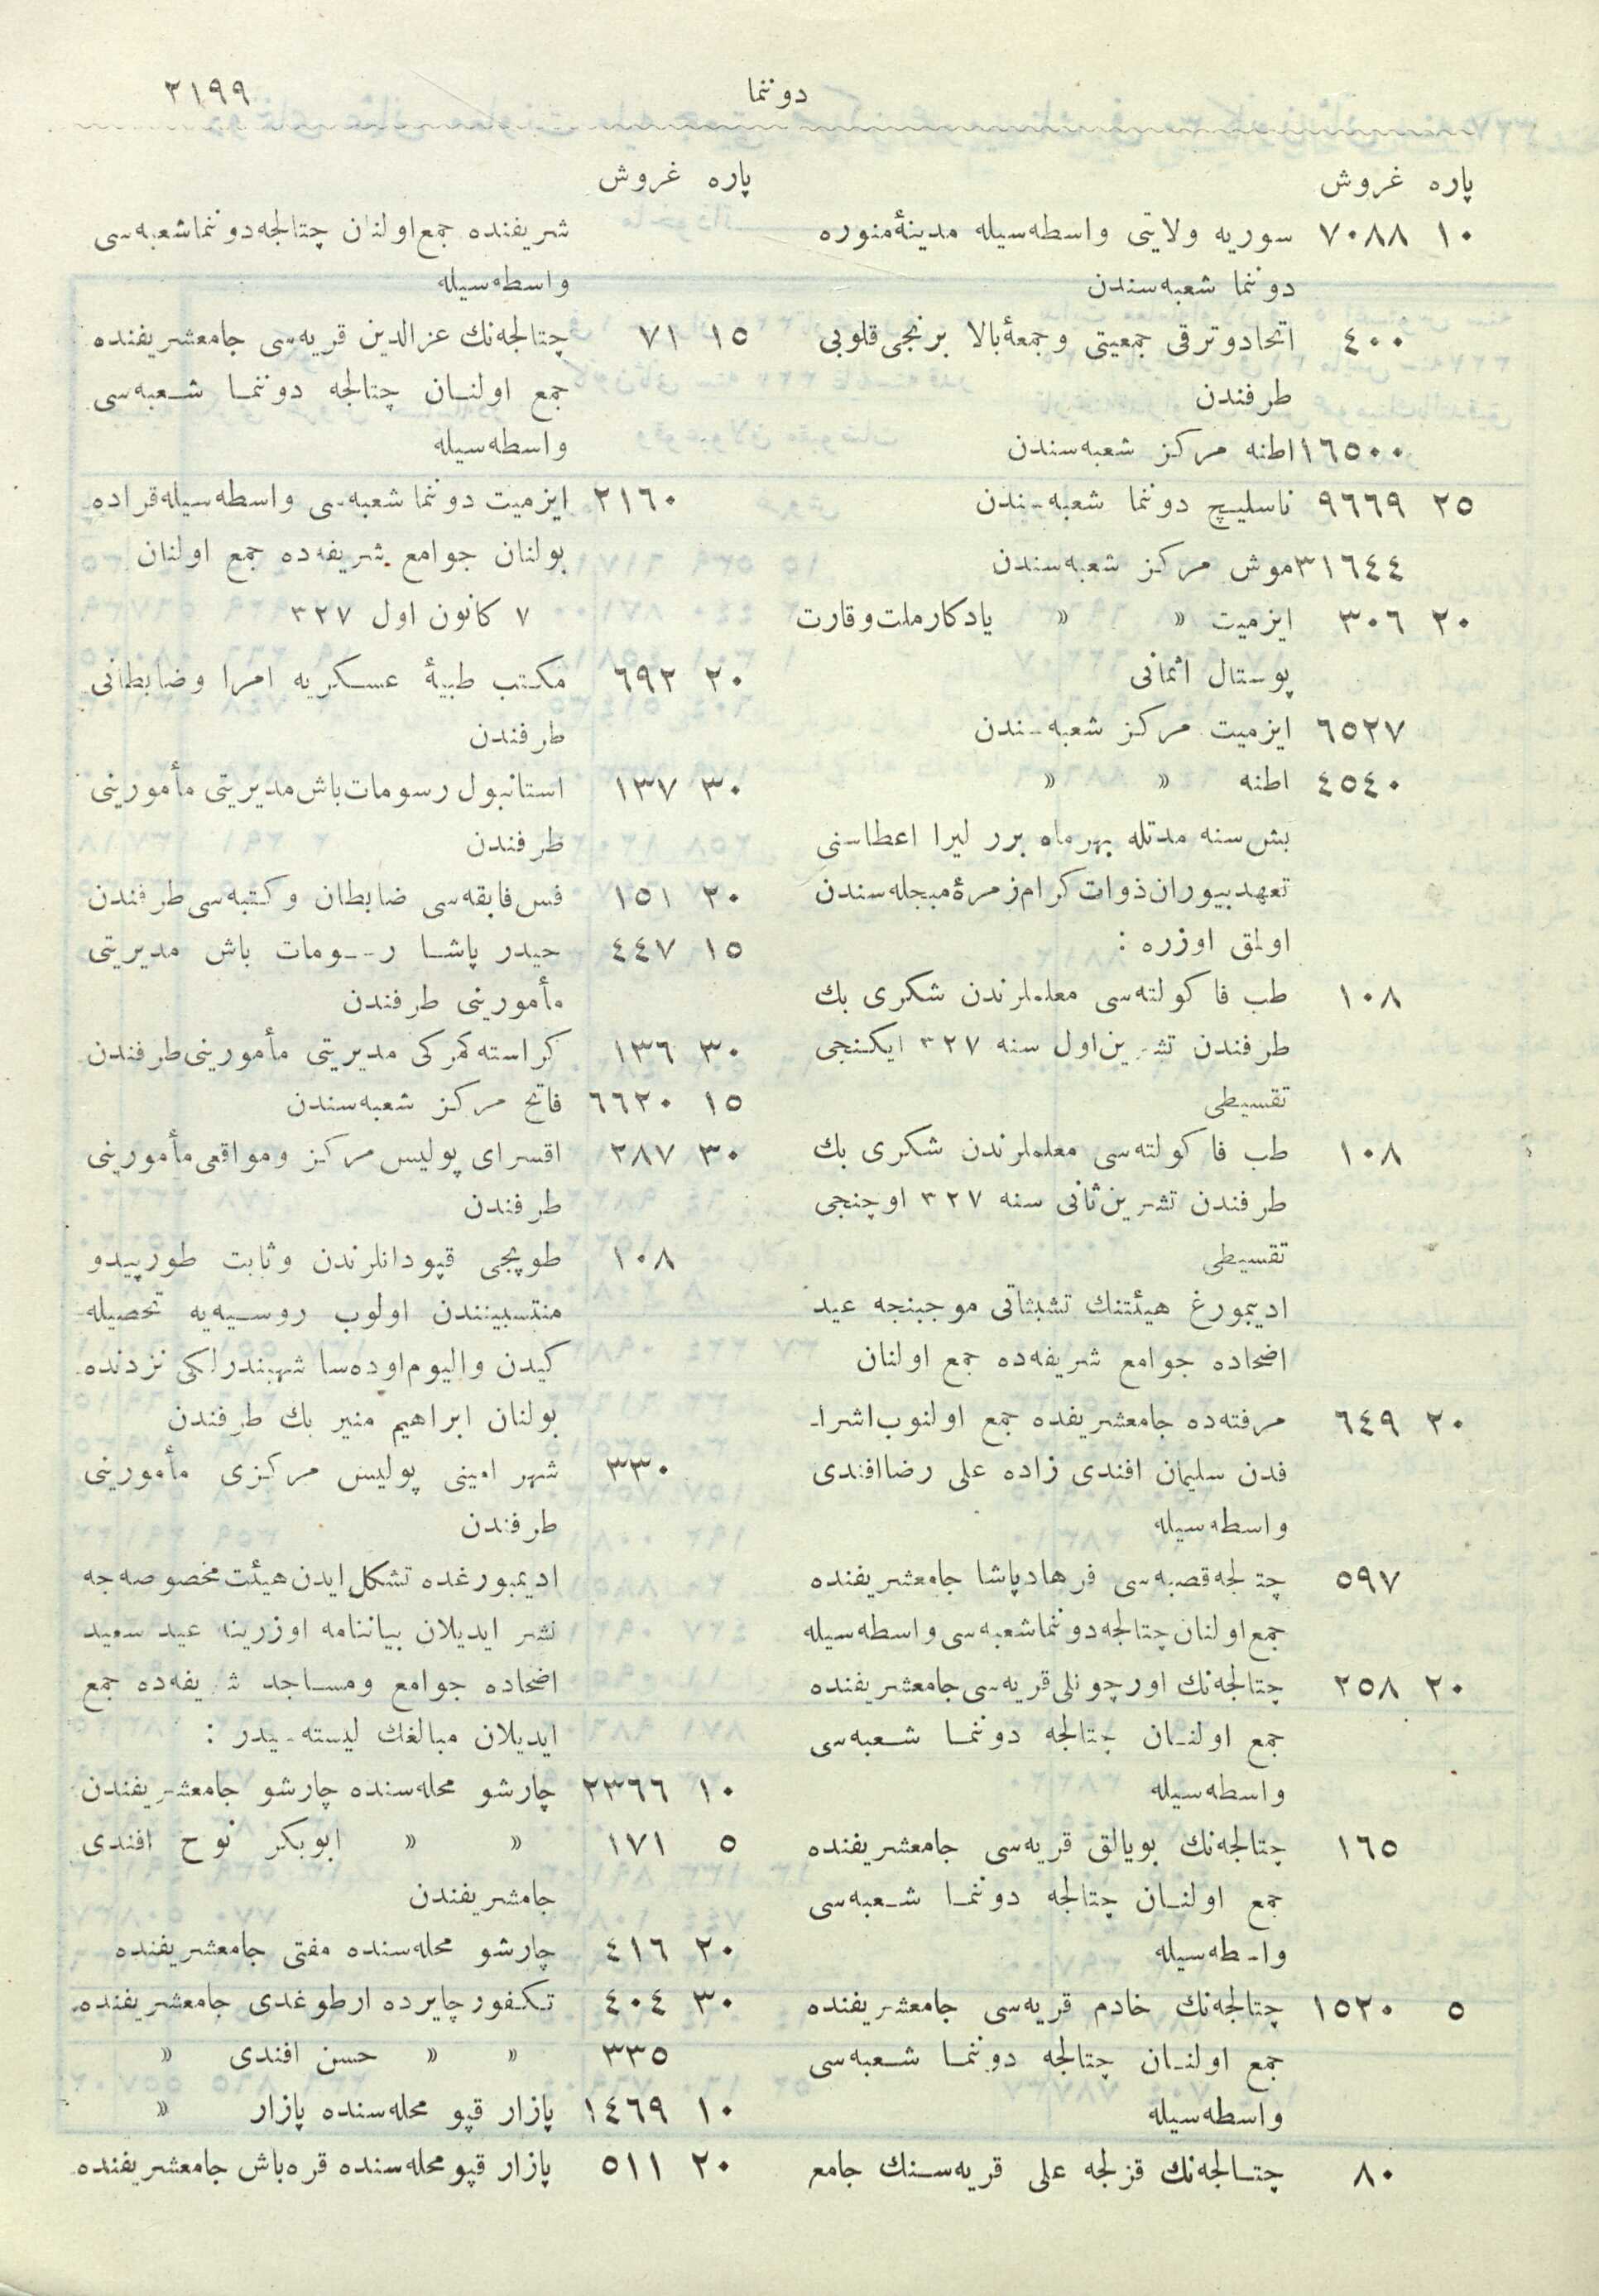 ٢١٩٩
دوننما
پاره غروش
١٠ ٧٠٨٨ سوريه ولايتى واسطه‌سيله مدينۀ منوره
دوننما شعبه‌سندن
٤٠٠ اتحاد و ترقى جمعيتى و جمعۀ بالا برنجى قلوبى
طرفندن
١٦٥٠٠ اطنه مركز شعبه‌سندن
٢٥ ٩٦٦٩ ناسليچ دوننما شعبه‌سندن
٣١٦٤٤ موش مركز شعبه‌سندن
٢٠ ٣٠٦ ايزميت « « يادكار ملت و قارت
پوستال اثمانى
٦٥٢٧ ايزميت مركز شعبه‌سندن
٤٥٤٠ اطنه « «
بش سنه مدتله بهر ماه برر ليرا اعطاسنى
تعهد بيوران ذوات كرام زمرۀ مبجله‌سندن
اولمق اوزره :
١٠٨ طب فاكولته‌سى معلملرندن شكرى بك
طرفندن تشرين اول سنه ٣٢٧ ايكنجى
تقسيطى
١٠٨ طب فاكولته‌سى معلملرندن شكرى بك
طرفندن تشرين ثانى سنه ٣٢٧ اوچنجى
تقسيطى
اديمبورغ هيئتنك تشبثاتى موجبنجه عيد
اضحاده جوامع شريفه‌ده جمع اولنان
٢٠ ٦٤٩ مرفته‌ده جامعشريفده جمع اولنوب اشرا‌ـ
فدن سليمان افندى زاده على رضا افندى
واسطه‌سيله
٥٩٧ چتالجه قصبه‌سى فرهاد پاشا جامعشريفنده
جمع اولنان چتالجه دوننما شعبه‌سى واسطه‌سيله
٢٠ ٢٥٨ چتالجه‌نك اورچونلى قريه‌سى جامعشريفنده
جمع اولنان چتالجه دوننما شعبه‌سى
واسطه‌سيله
١٦٥ چتالجه‌نك بويالق قريه‌سى جامعشريفنده
جمع اولنان چتالجه دوننما شعبه‌سى
واسطه‌سيله
٥ ١٥٢٠ چتالجه‌نك خادم قريه‌سى جامعشريفنده
جمع اولنان چتالجه دوننما شعبه‌سى
واسطه‌سيله
٨٠ چتالجه‌نك قزلجه على قريه‌سنك جامع
پاره غروش
شريفنده جمع اولنان چتالجه دوننما شعبه‌سى
واسطه‌سيله
١٥ ٧١ چتالجه‌نك عزالدين قريه‌سى جامعشريفنده
جمع اولنان چتالجه دوننما شعبه‌سى
واسطه‌سيله
٢١٦٠ ايزميت دوننما شعبه‌سى واسطه‌سيله قراده
بولنان جوامع شريفه‌ده جمع اولنان
٧ كانون اول ٣٢٧
٢٠ ٦٩٢ مكتب طبيۀ عسكريه امرا و ضابطانى
طرفندن
٣٠ ١٣٧ استانبول رسومات باش مديريتى مأمورينى
طرفندن
٢٠ ١٥١ فس فابقه‌سى ضابطان و كتبه‌سى طرفندن
١٥ ٤٤٧ حيدر پاشا رسومات باش مديريتى
مأمورينى طرفندن
٣٠ ١٣٦ كراسته كمركى مديريتى مأمورينى طرفندن
١٥ ٦٦٢٠ فاتح مركز شعبه‌سندن
٣٠ ٢٨٧ اقسراى پوليس مركز و مواقعى مأمورينى
طرفندن
١٠٨ طوپجى قپودانلرندن و ثابت طورپيدو
منتسبيننדن اولوب روسيه‌يه تحصيله
كيدن و اليوم اوده‌سا شهبندرلكى نزدنده
بولنان ابراهيم منير بك طرفندن
٣٣٠ شهر امينى پوليس مركزى مأمورينى
طرفندن
اديمبورغده تشكل ايدن هيئت مخصوصه‌جه
نشر ايديلان بياننامه اوزرينه عيد سعيد
اضحاده جوامع و مساجد شريفه‌ده جمع
ايديلان مبالغك ليسته‌سيدر :
١٠ ٢٣٦٦ چارشو محله‌سنده چارشو جامعشريفندن
٥ ١٧١ « « ابوبكر نوح افندى
جامشريفندن
٢٠ ٤١٦ چارشو محله‌سنده مفتى جامعشريفنده
٣٠ ٤٠٤ تكفور چايرده ارطوغدى جامعشريفنده
٣٣٥ « « حسن افندى «
١٠ ١٤٦٩ پازار قپو محله‌سنده پازار «
٢٠ ٥١١ پازار قپو محله‌سنده قره‌باش جامعشريفنده